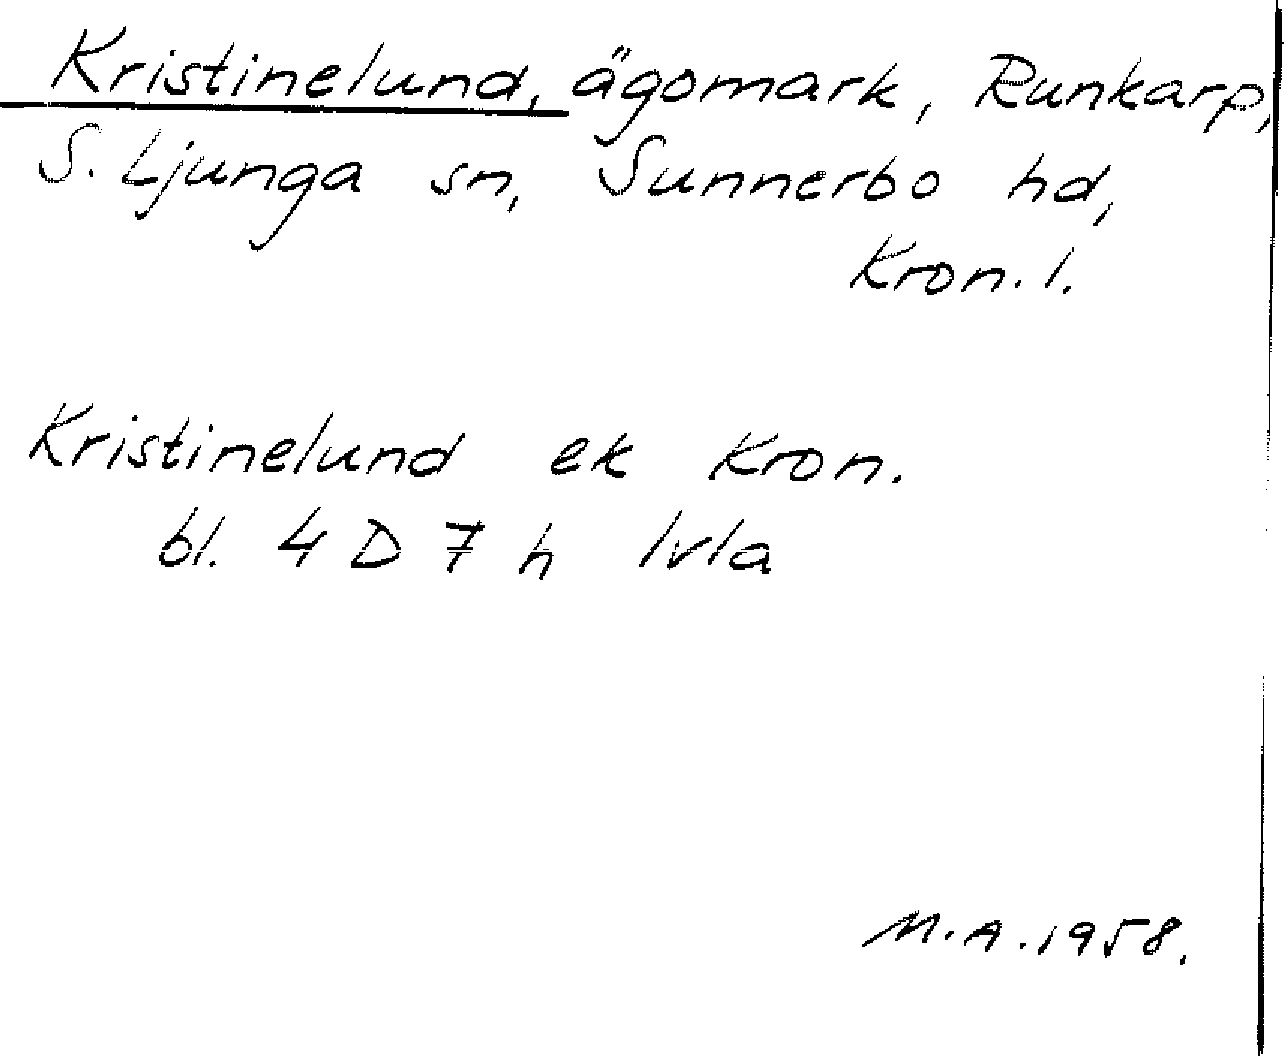 Kristinelund, ägomark, Runkarp,
S. Ljunga sn, Sunnerbo hd,
Kron. l.
Kristinelund ek Kron.
bl. 4 D 7 h Ivla
M.A. 1958.